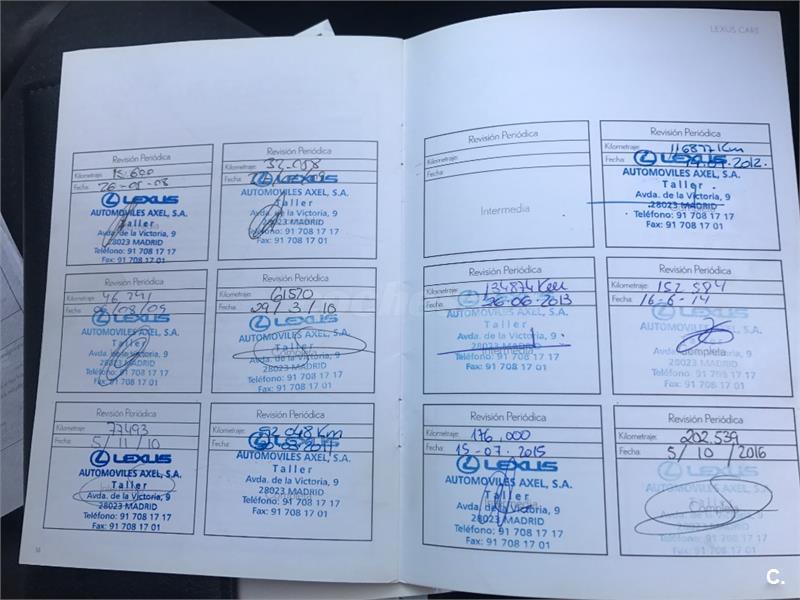 LEXUS CARE
Revisión Periódica
Kilometraje: 15.600
Fecha: 26-05-08
LEXUS
AUTOMOVILES AXEL, S.A.
Taller
Avda. de la Victoria, 9
28023 MADRID
Teléfono: 91 708 17 17
Fax: 91 708 17 01
Revisión Periódica
Kilometraje:
Fecha:
LEXUS
AUTOMOVILES AXEL, S.A.
Taller
Avda. de la Victoria, 9
28023 MADRID
Teléfono: 91 708 17 17
Fax: 91 708 17 01
Revisión Periódica
Kilometraje: 46.241
Fecha: 08/09
LEXUS
AUTOMOVILES AXEL, S.A.
Taller
Avda. de la Victoria, 9
28023 MADRID
Teléfono: 91 708 17 17
Fax: 91 708 17 01
Revisión Periódica
Kilometraje: 61520
Fecha: 29/3/10
LEXUS
AUTOMOVILES AXEL, S.A.
Taller
Avda. de la Victoria, 9
28023 MADRID
Teléfono: 91 708 17 17
Fax: 91 708 17 01
Revisión Periódica
Kilometraje: 77493
Fecha: 5/11/10
LEXUS
AUTOMOVILES AXEL, S.A.
Taller
Avda. de la Victoria, 9
28023 MADRID
Teléfono: 91 708 17 17
Fax: 91 708 17 01
Revisión Periódica
Kilometraje: 92.048 Km
Fecha:
LEXUS
AUTOMOVILES AXEL, S.A.
Taller
Avda. de la Victoria, 9
28023 MADRID
Teléfono: 91 708 17 17
Fax: 91 708 17 01
Revisión Periódica
Kilometraje:
Fecha:
Intermedia
Revisión Periódica
Kilometraje: 116877 Km
Fecha: 2012.
LEXUS
Taller
Avda. de la Victoria, 9
28023 MADRID
Teléfono: 91 708 17 17
Fax: 91 708 17 01
Revisión Periódica
Kilometraje: 134874 Km
Fecha: 26-06-2013
LEXUS
AUTOMOVILES AXEL, S.A.
Taller
Avda. de la Victoria, 9
28023 MADRID
Intermedia
Teléfono: 91 708 17 17
Fax: 91 708 17 01
Revisión Periódica
Kilometraje: 152.584
Fecha: 16-6-14
LEXUS
AUTOMOVILES AXEL, S.A.
Taller
Avda. de la Victoria, 9
Completa
28023 MADRID
Teléfono: 91 708 17 17
Fax: 91 708 17 01
Revisión Periódica
Kilometraje: 176.000
Fecha: 15-07-2015
LEXUS
AUTOMOVILES AXEL, S.A.
Taller
Avda. de la Victoria, 9
28023 MADRID
Teléfono: 91 708 17 17
Fax: 91 708 17 01
Revisión Periódica
Kilometraje: 202.539
Fecha: 5/10/2016
LEXUS
AUTOMOVILES AXEL, S.A.
28023 MADRID
Teléfono: 91 708 17 17
Fax: 91 708 17 01
C.